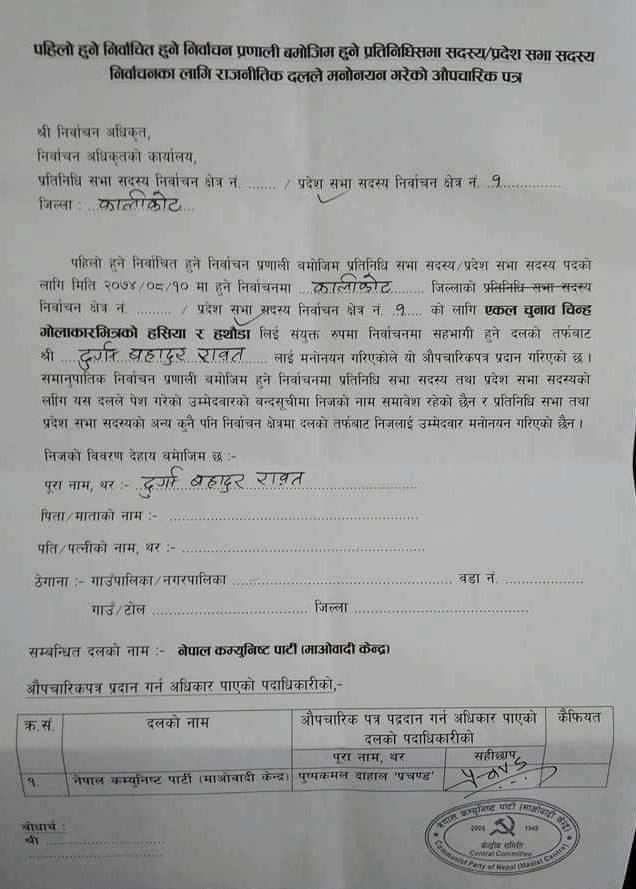 पहिलो हुने निर्वाचित हुने निर्वाचन प्रणाली बमोजिम हुने प्रतिनिधिसभा सदस्य/प्रदेश सभा सदस्य
निर्वाचनका लागि राजनीतिक दलले मनोनयन गरेको औपचारिक पत्र
श्री निर्वाचन अधिकृत,
निर्वाचन अधिकृतको कार्यालय,
प्रतिनिधि सभा सदस्य निर्वाचन क्षेत्र नं. ....... / प्रदेश सभा सदस्य निर्वाचन क्षेत्र नं. ..१...............
जिल्ला : ..कालीकोट....
पहिलो हुने निर्वाचित हुने निर्वाचन प्रणाली बमोजिम प्रतिनिधि सभा सदस्य/प्रदेश सभा सदस्य पदको
लागि मिति २०७४/०८/१० मा हुने निर्वाचनमा ...कालीकोट....... जिल्लाको प्रतिनिधि सभा सदस्य
निर्वाचन क्षेत्र नं. ......... / प्रदेश सभा सदस्य निर्वाचन क्षेत्र नं. .१.... को लागि एकल चुनाव चिन्ह
गोलाकारभित्रको हसिया र हथौडा लिई संयुक्त रुपमा निर्वाचनमा सहभागी हुने दलको तर्फबाट
श्री ....दुर्गा बहादुर रावत...... लाई मनोनयन गरिएकोले यो औपचारिकपत्र प्रदान गरिएको छ ।
समानुपातिक निर्वाचन प्रणाली बमोजिम हुने निर्वाचनमा प्रतिनिधि सभा सदस्य तथा प्रदेश सभा सदस्यको
लागि यस दलले पेश गरेको उम्मेदवारको बन्दसूचीमा निजको नाम समावेश रहेको छैन र प्रतिनिधि सभा तथा
प्रदेश सभा सदस्यको अन्य कुनै पनि निर्वाचन क्षेत्रमा दलको तर्फबाट निजलाई उम्मेदवार मनोनयन गरिएको छैन ।
निजको विवरण देहाय बमोजिम छ :-
पूरा नाम, थर :- ..दुर्गा बहादुर रावत............................
पिता/माताको नाम :- ......................................................
पति/पत्नीको नाम, थर :- ....................................................
ठेगाना :- गाउँपालिका/नगरपालिका ............................................... वडा नं. .................
गाउँ/टोल .................................. जिल्ला ......................................
सम्बन्धित दलको नाम :- नेपाल कम्युनिष्ट पार्टी (माओवादी केन्द्र)
औपचारिकपत्र प्रदान गर्न अधिकार पाएको पदाधिकारीको,-
क्र.सं. दलको नाम औपचारिक पत्र पद्रदान गर्न अधिकार पाएको कैफियत
दलको पदाधिकारीको
पूरा नाम, थर सहीछाप
१. नेपाल कम्युनिष्ट पार्टी (माओवादी केन्द्र) पुष्पकमल दाहाल 'प्रचण्ड'
बोधार्थ :
श्री ..............................
नेपाल कम्युनिष्ट पार्टी (माओवादी केन्द्र)
2006 1949
केन्द्रीय समिति
Central Committee
Communist Party of Nepal (Maoist Centre)